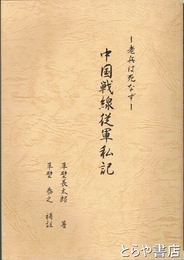 ―老兵は死なず―
中国戦線従軍私記
長太郎 著
恭之 補註
とらや書店